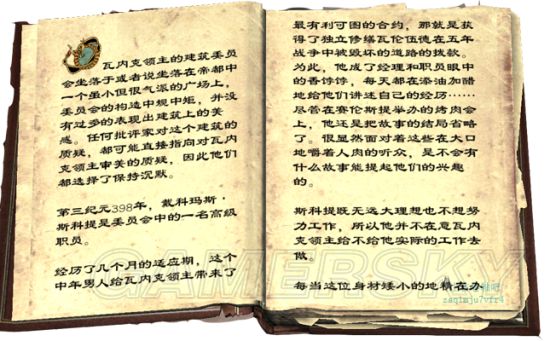 瓦内克领主的建筑委员
会坐落于或者说坐落在帝都中
一个虽小但很气派的广场上，
委员会的构造中规中矩，并没
有过多的表现出建筑上的美
感。任何批评家对这个建筑的
质疑，都可能直接指向对瓦内
克领主审美的质疑，因此他们
都选择了保持沉默。
第三纪元398年，戴科玛斯·
斯科提是委员会中的一名高级
职员。
经历了几个月的适应期，这个
中年男人给瓦内克领主带来了
最有利可图的合约，那就是获
得了独立修缮瓦伦伍德在五年
战争中被毁坏的道路的拨款。
为此，他成了经理和职员眼中
的香饽饽，每天都在添油加醋
地给他们讲述自己的经历……
尽管在赛伦斯提举办的烤肉会
上，他还是把故事的结局省略
了。很显然面对着这些在大口
地嚼着人肉的听众，是不会有
什么故事能提起他们的兴趣
的。
斯科提既无远大理想也不想努
力工作，所以他并不在意瓦内
克领主给不给他实际的工作去
做。
每当这位身材矮小的地精在办
GAMERSKY
zaqimju7vfr4